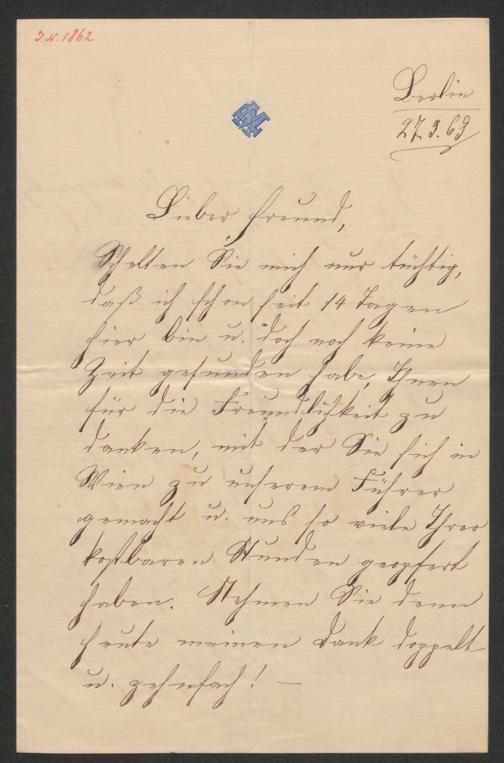 I.N. 1862
Berlin
27.9.69
Lieber Freund,
Schelten Sie mich nur tüchtig,
daß ich schon seit 14 Tagen
hier bin u. doch noch keine
Zeit gefunden habe, Ihnen
für die Freundlichkeit zu
danken, mit der Sie sich in
Wien zu unserem Führer
gemacht u. uns so viele Ihrer
kostbaren Stunden geopfert
haben. Nehmen Sie denn
heute meinen Dank doppelt
u. zehnfach! —